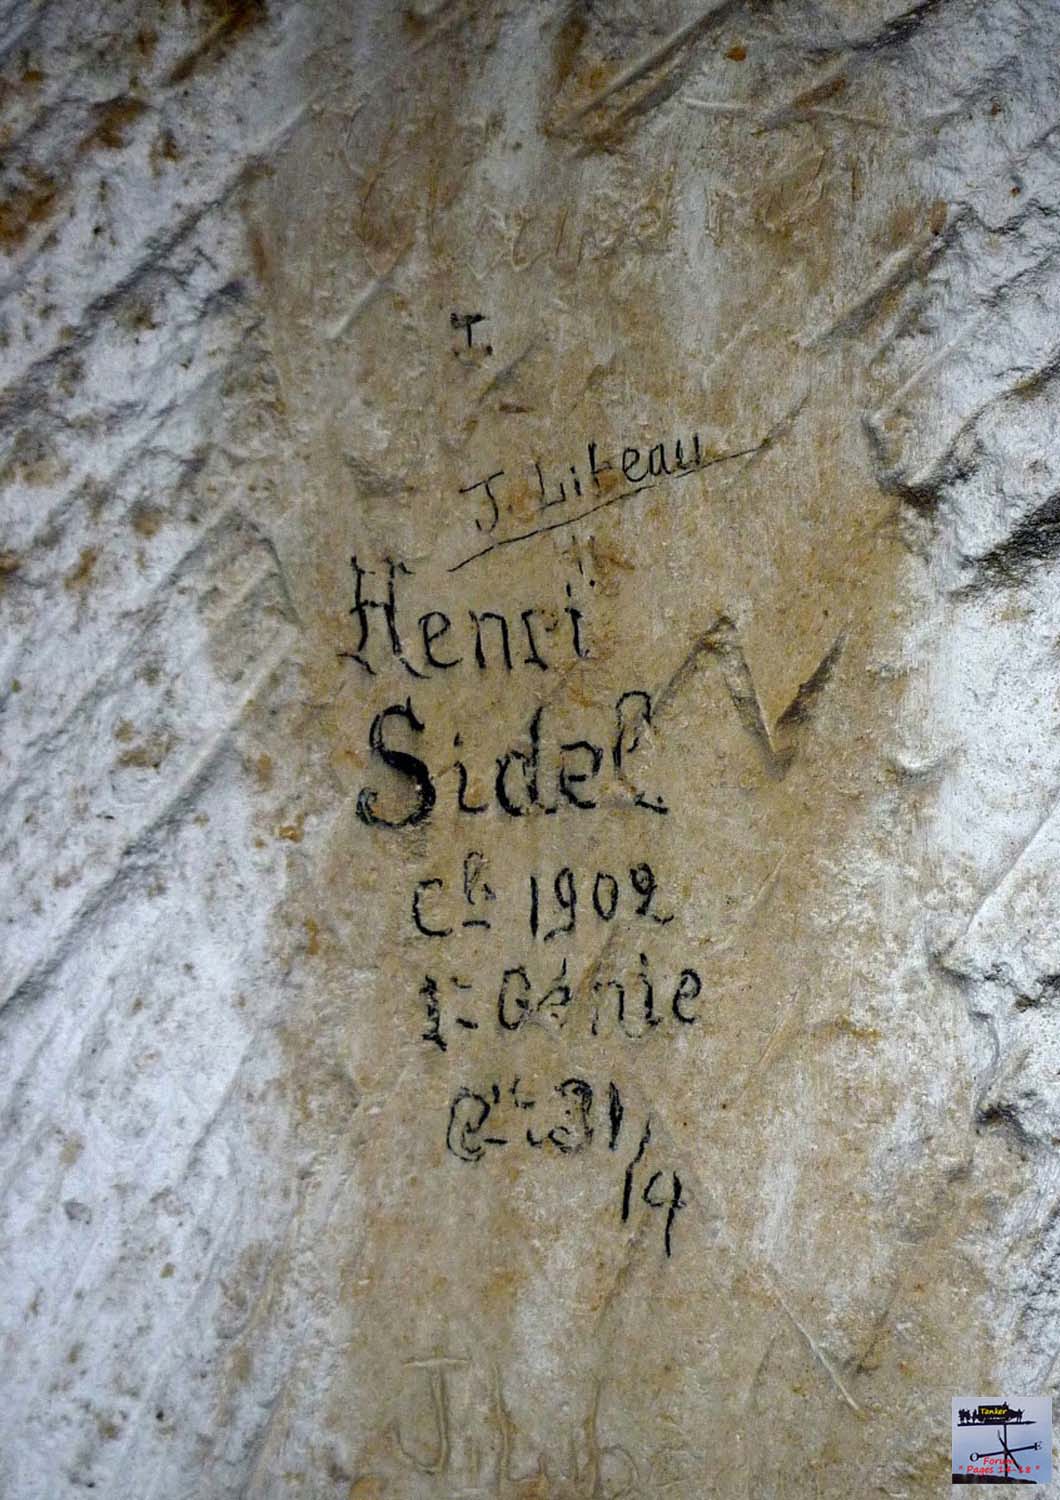 I.
J. Liteau
Henri
Sidel
Cl. 1902
1er Génie
Cie 31/4
J
Tanker
O E
Forum
" Pages 14-18 "